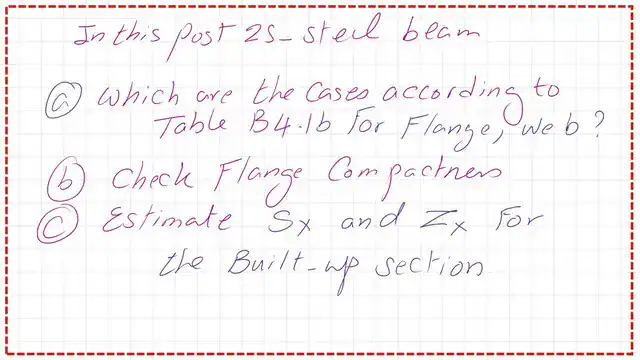 In this post 25- steel beam
a which are the Cases according to
Table B4.1b For Flange, web?
b Check Flange Compactness
c Estimate Sx and Zx For
the Built-up section